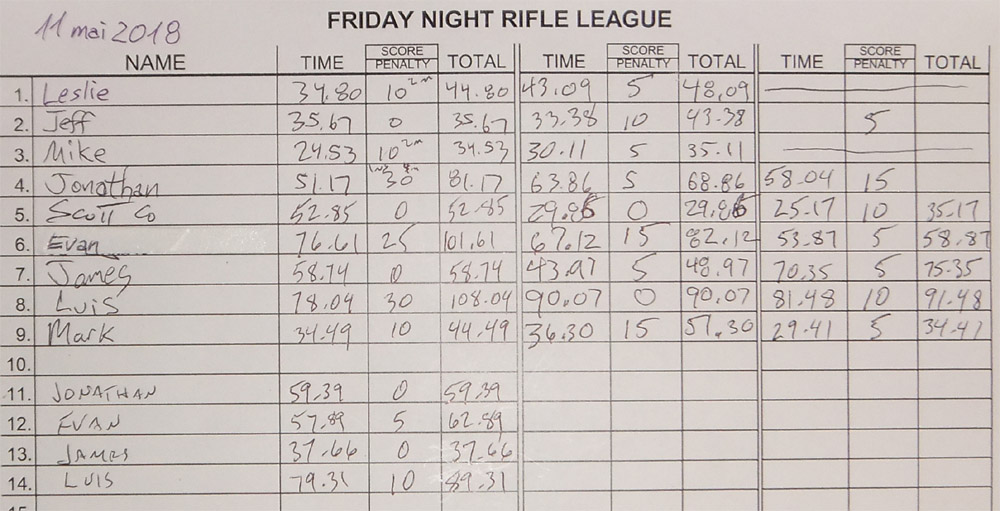 11 mai 2018
FRIDAY NIGHT RIFLE LEAGUE
NAME TIME SCORE PENALTY TOTAL TIME SCORE PENALTY TOTAL TIME SCORE PENALTY TOTAL
1. Leslie 34.80 10 2m 44.80 43.09 5 48.09
2. Jeff 35.67 0 35.67 33.38 10 43.38 5
3. Mike 24.53 10 2m 34.53 30.11 5 35.11
4. Jonathan 51.17 30 81.17 63.86 5 68.86 58.04 15
5. Scott Co 52.85 0 52.85 29.86 0 29.86 25.17 10 35.17
6. Evan 76.61 25 101.61 67.12 15 82.12 53.87 5 58.87
7. James 58.74 0 58.74 43.97 5 48.97 70.35 5 75.35
8. Luis 78.04 30 108.04 90.07 0 90.07 81.48 10 91.48
9. Mark 34.49 10 44.49 36.30 15 51.30 29.41 5 34.41
10.
11. JONATHAN 59.39 0 59.39
12. EVAN 57.89 5 62.89
13. JAMES 37.66 0 37.66
14. LUIS 79.31 10 89.31